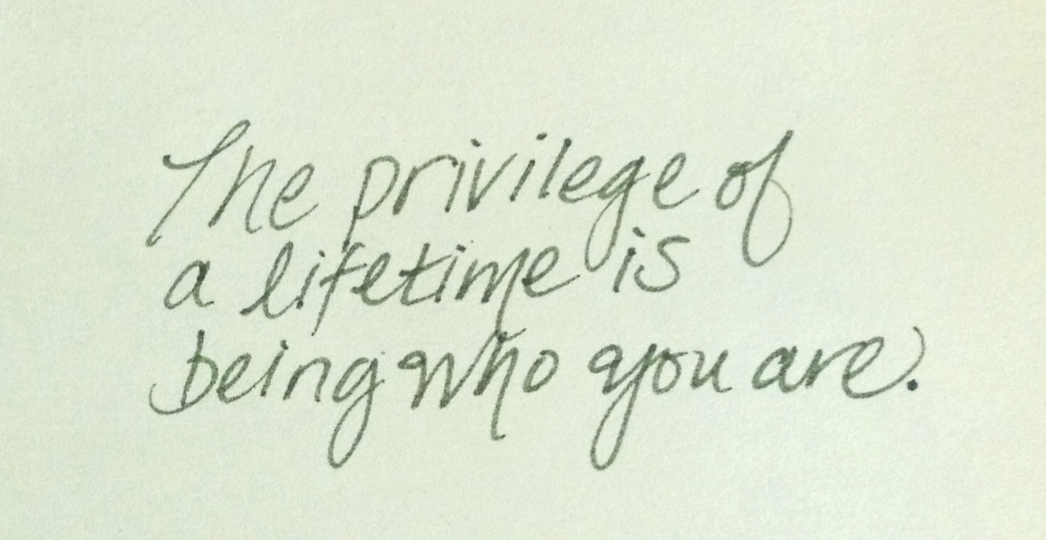 The privilege of
a lifetime is
being who you are.